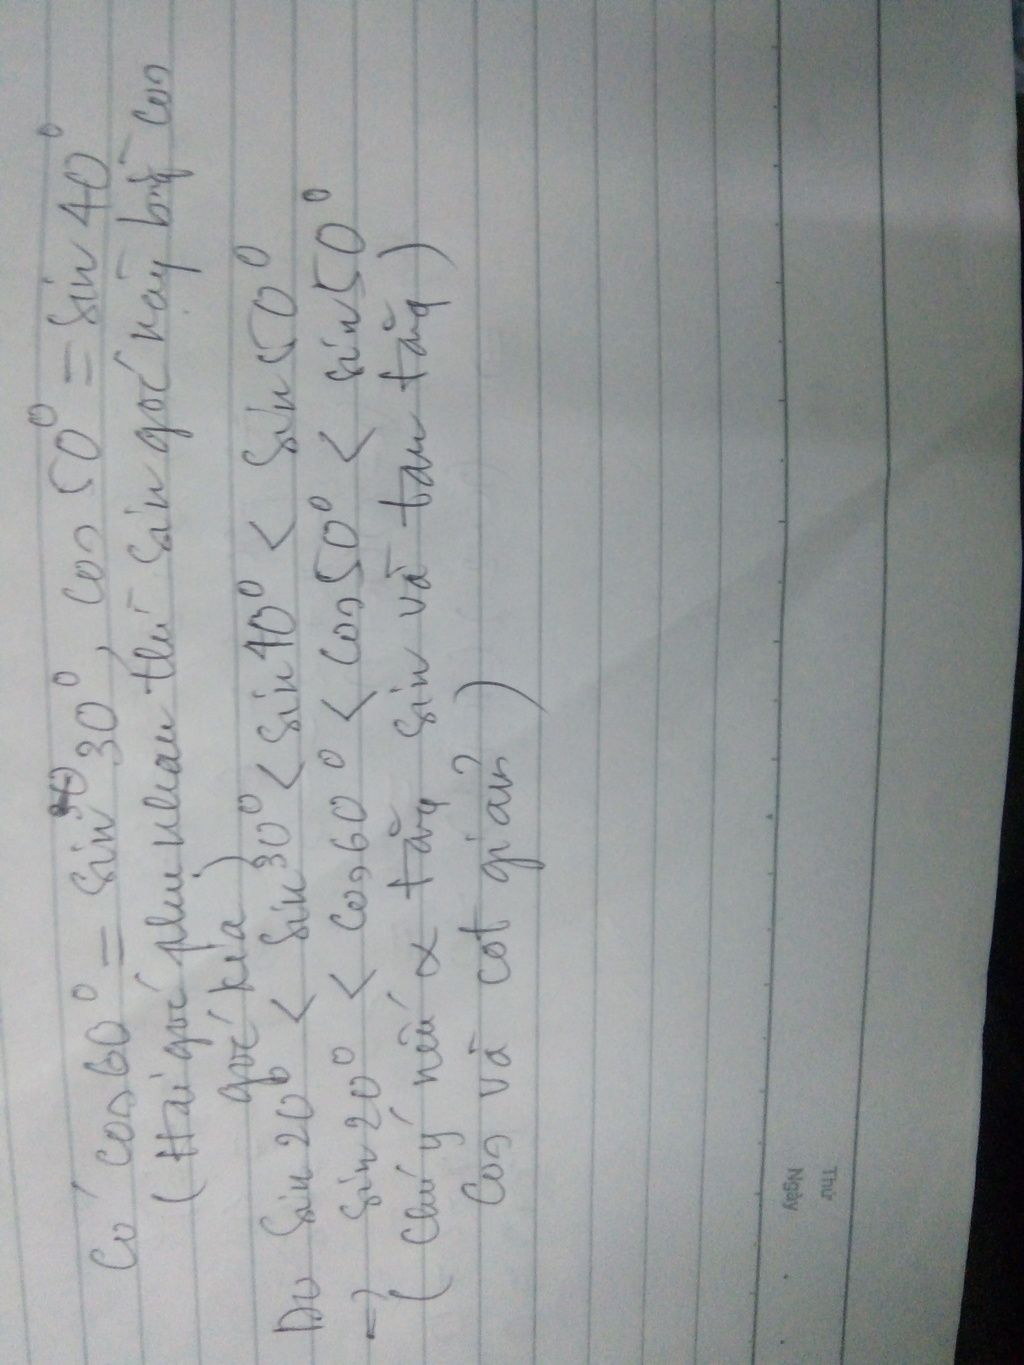 Có cos 60° = sin 30°, cos 50° = sin 40°
(Hai góc phụ nhau thì sin góc này bằng cos
góc kia)
Do sin 20° < sin 30° < sin 40° < sin 50°
=> sin 20° < cos 60° < cos 50° < sin 50°
(Chú ý nếu α tăng sin và tan tăng)
cos và cot giảm)
Thứ
Ngày